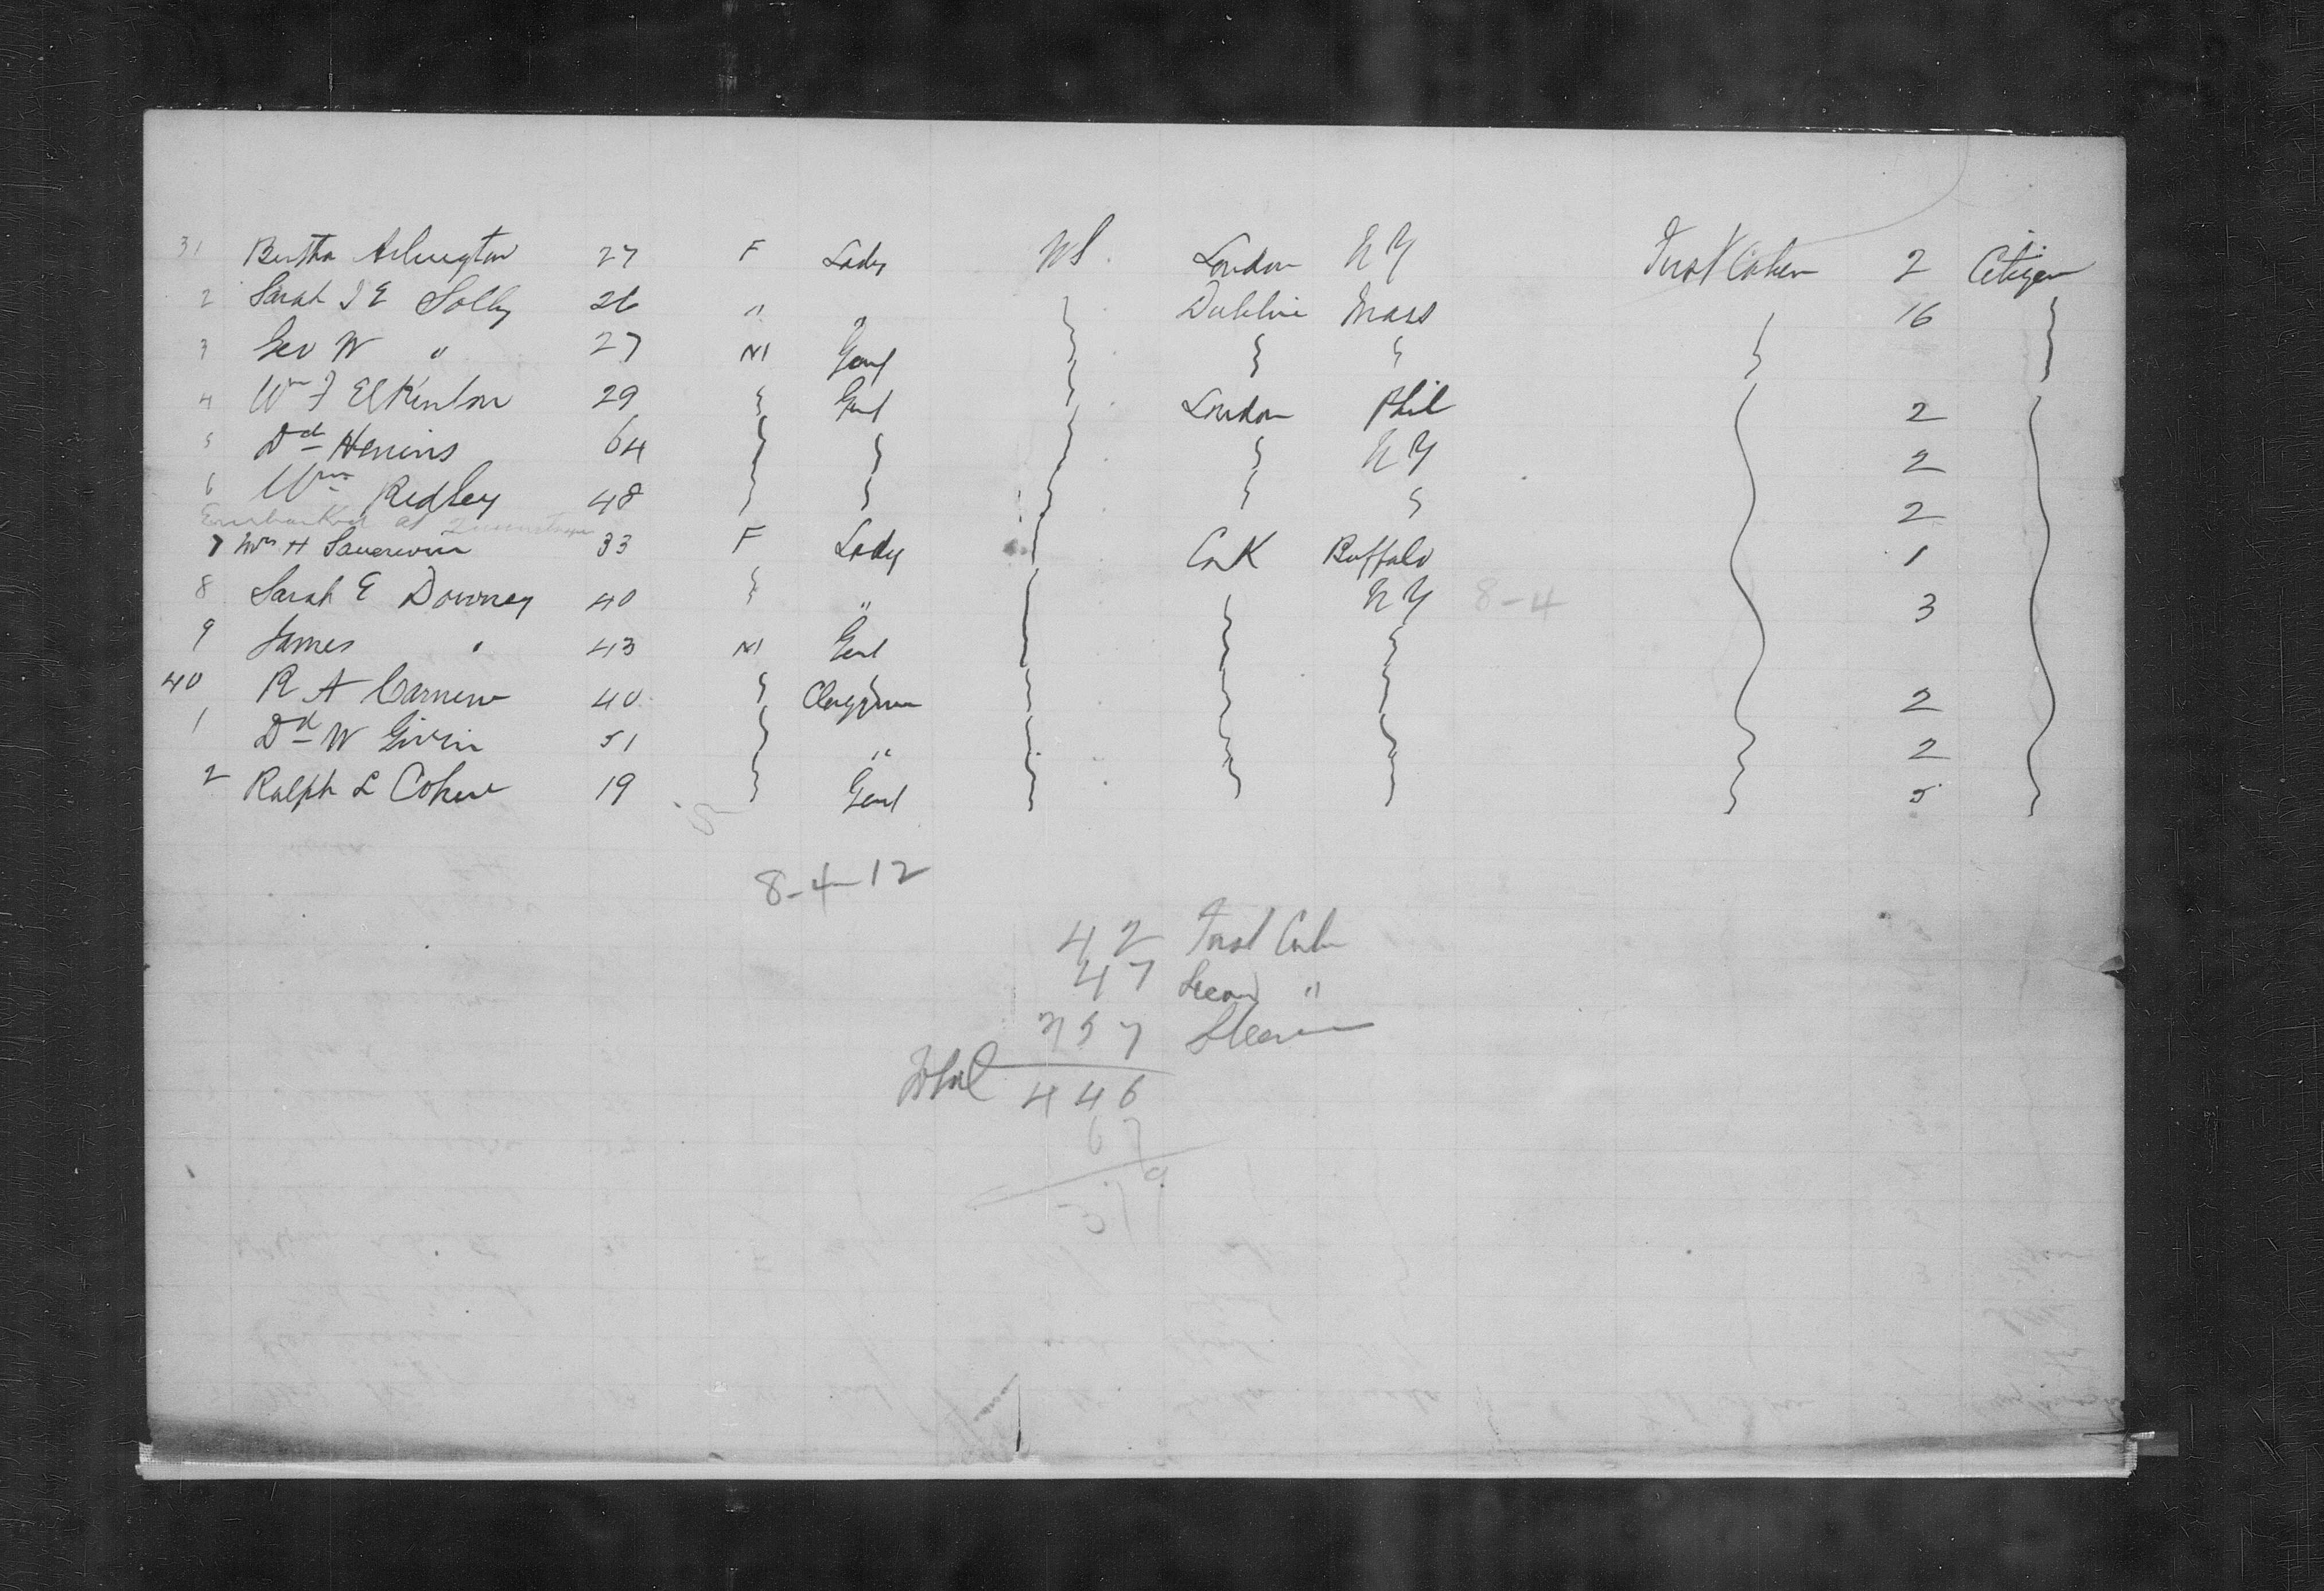 31 Bertha Arlington 27 F Lady US. London NY First Cabin 2 Citizen
2 Sarah J E Solly 26 " " Dublin Mass 16
3 Geo W " 27 M Gent
4 Wm F Elkinton 29 Gent London Phil 2
5 Dd Henins 64 NY 2
6 Wm Ridley 48 2
Embarked at Queenstown
7 Mrs H Sauerwin 33 F Lady Cork Buffalo 1
8 Sarah E Downey 40 " NY 8-4 3
9 James " 43 M Gent
40 R A Carnew 40 Clergyman 2
1 Dd W Givin 51 " 2
2 Ralph L Cohen 19 Gent 5
8-4-12
42 First Cabin
47 Second "
357 Steerage
Total 446
67
379